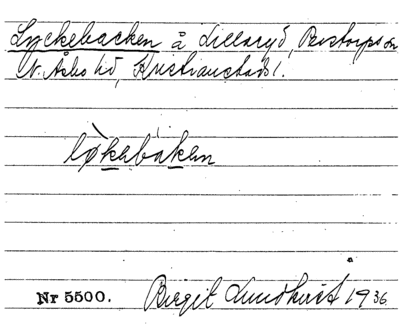 Lyckebacken å Lillaryd, Perstorps sn
N. Åsbo hd, Kristianstads l.
lø̀kebáken
Nr 5500. Birgit Lundkvist 1936